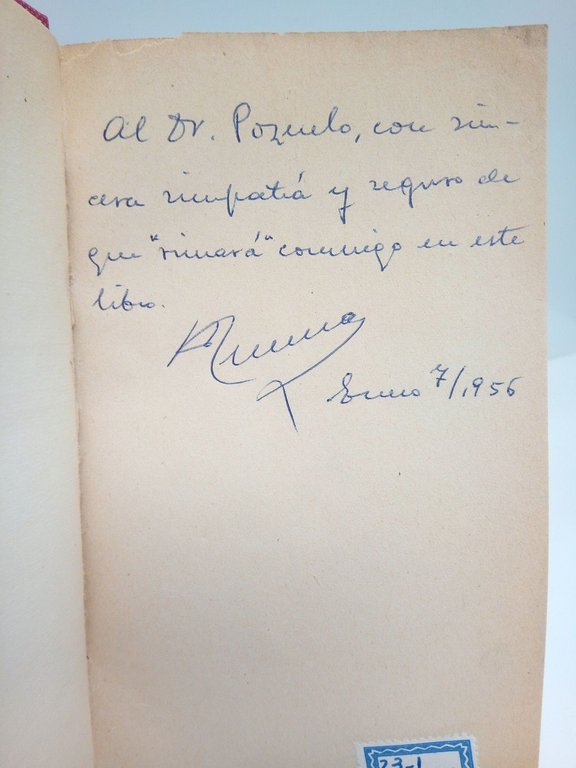 Al Dr. Pozuelo, con sin-
cera simpatía y seguro de
que "rimará" conmigo en este
libro.
Enero 7/1956
23-1